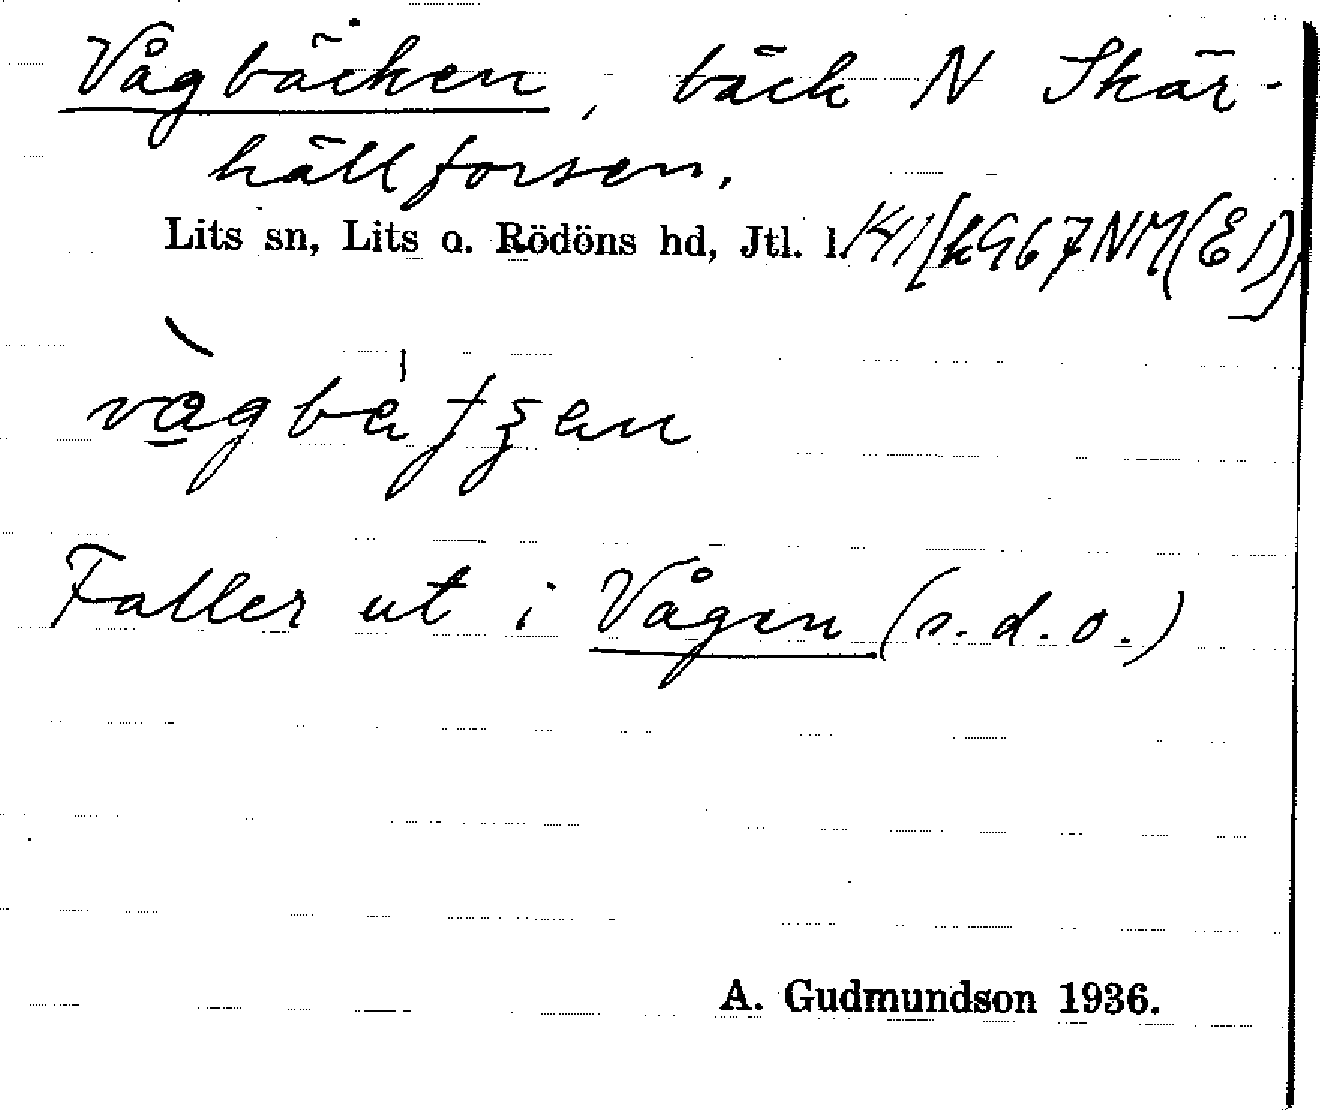 Vågbäcken, bäck N Skär-
hällforsen.
Lits sn, Lits o. Rödöns hd, Jtl. l.
Faller ut i Vågen (s. d. o.)
A. Gudmundson 1936.